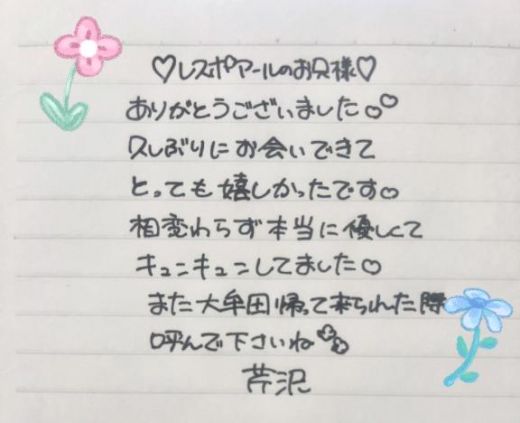 ♡レスポアールのお兄様♡
ありがとうございました♡♡
久しぶりにお会いできて
とっても嬉しかったです♡
相変わらず本当に優しくて
キュンキュンしてました♡
また大牟田帰って来られた際
呼んで下さいね♡♡
芹沢